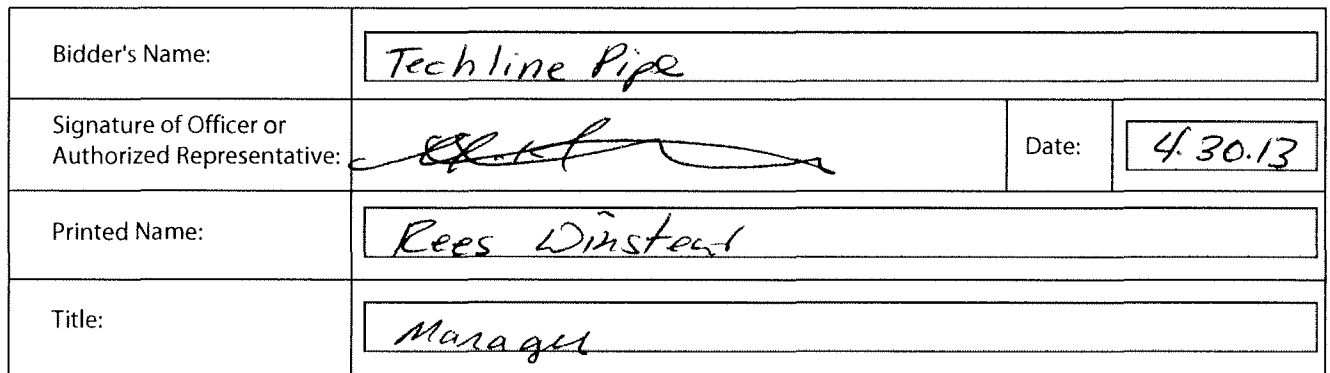 Bidder's Name: Techline Pipe
Signature of Officer or
Authorized Representative:
Date: 4.30.13
Printed Name: Rees Winstead
Title: Manager